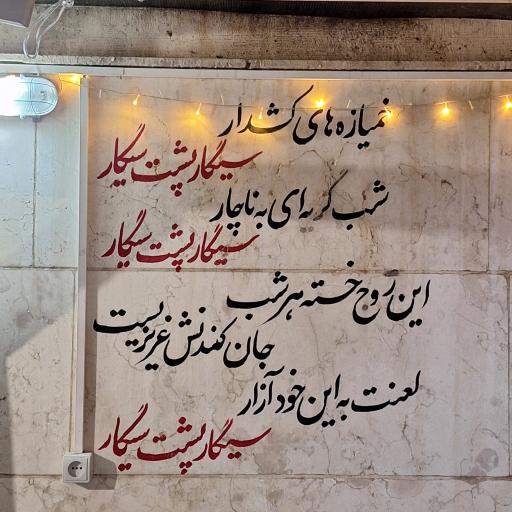 خمیازه‌های کشدار
سیگار پشت سیگار
شب گریه‌ای به ناچار
سیگار پشت سیگار
این روح خسته هر شب
جان کندنش غریزیست
لعنت به این خود آزار
سیگار پشت سیگار